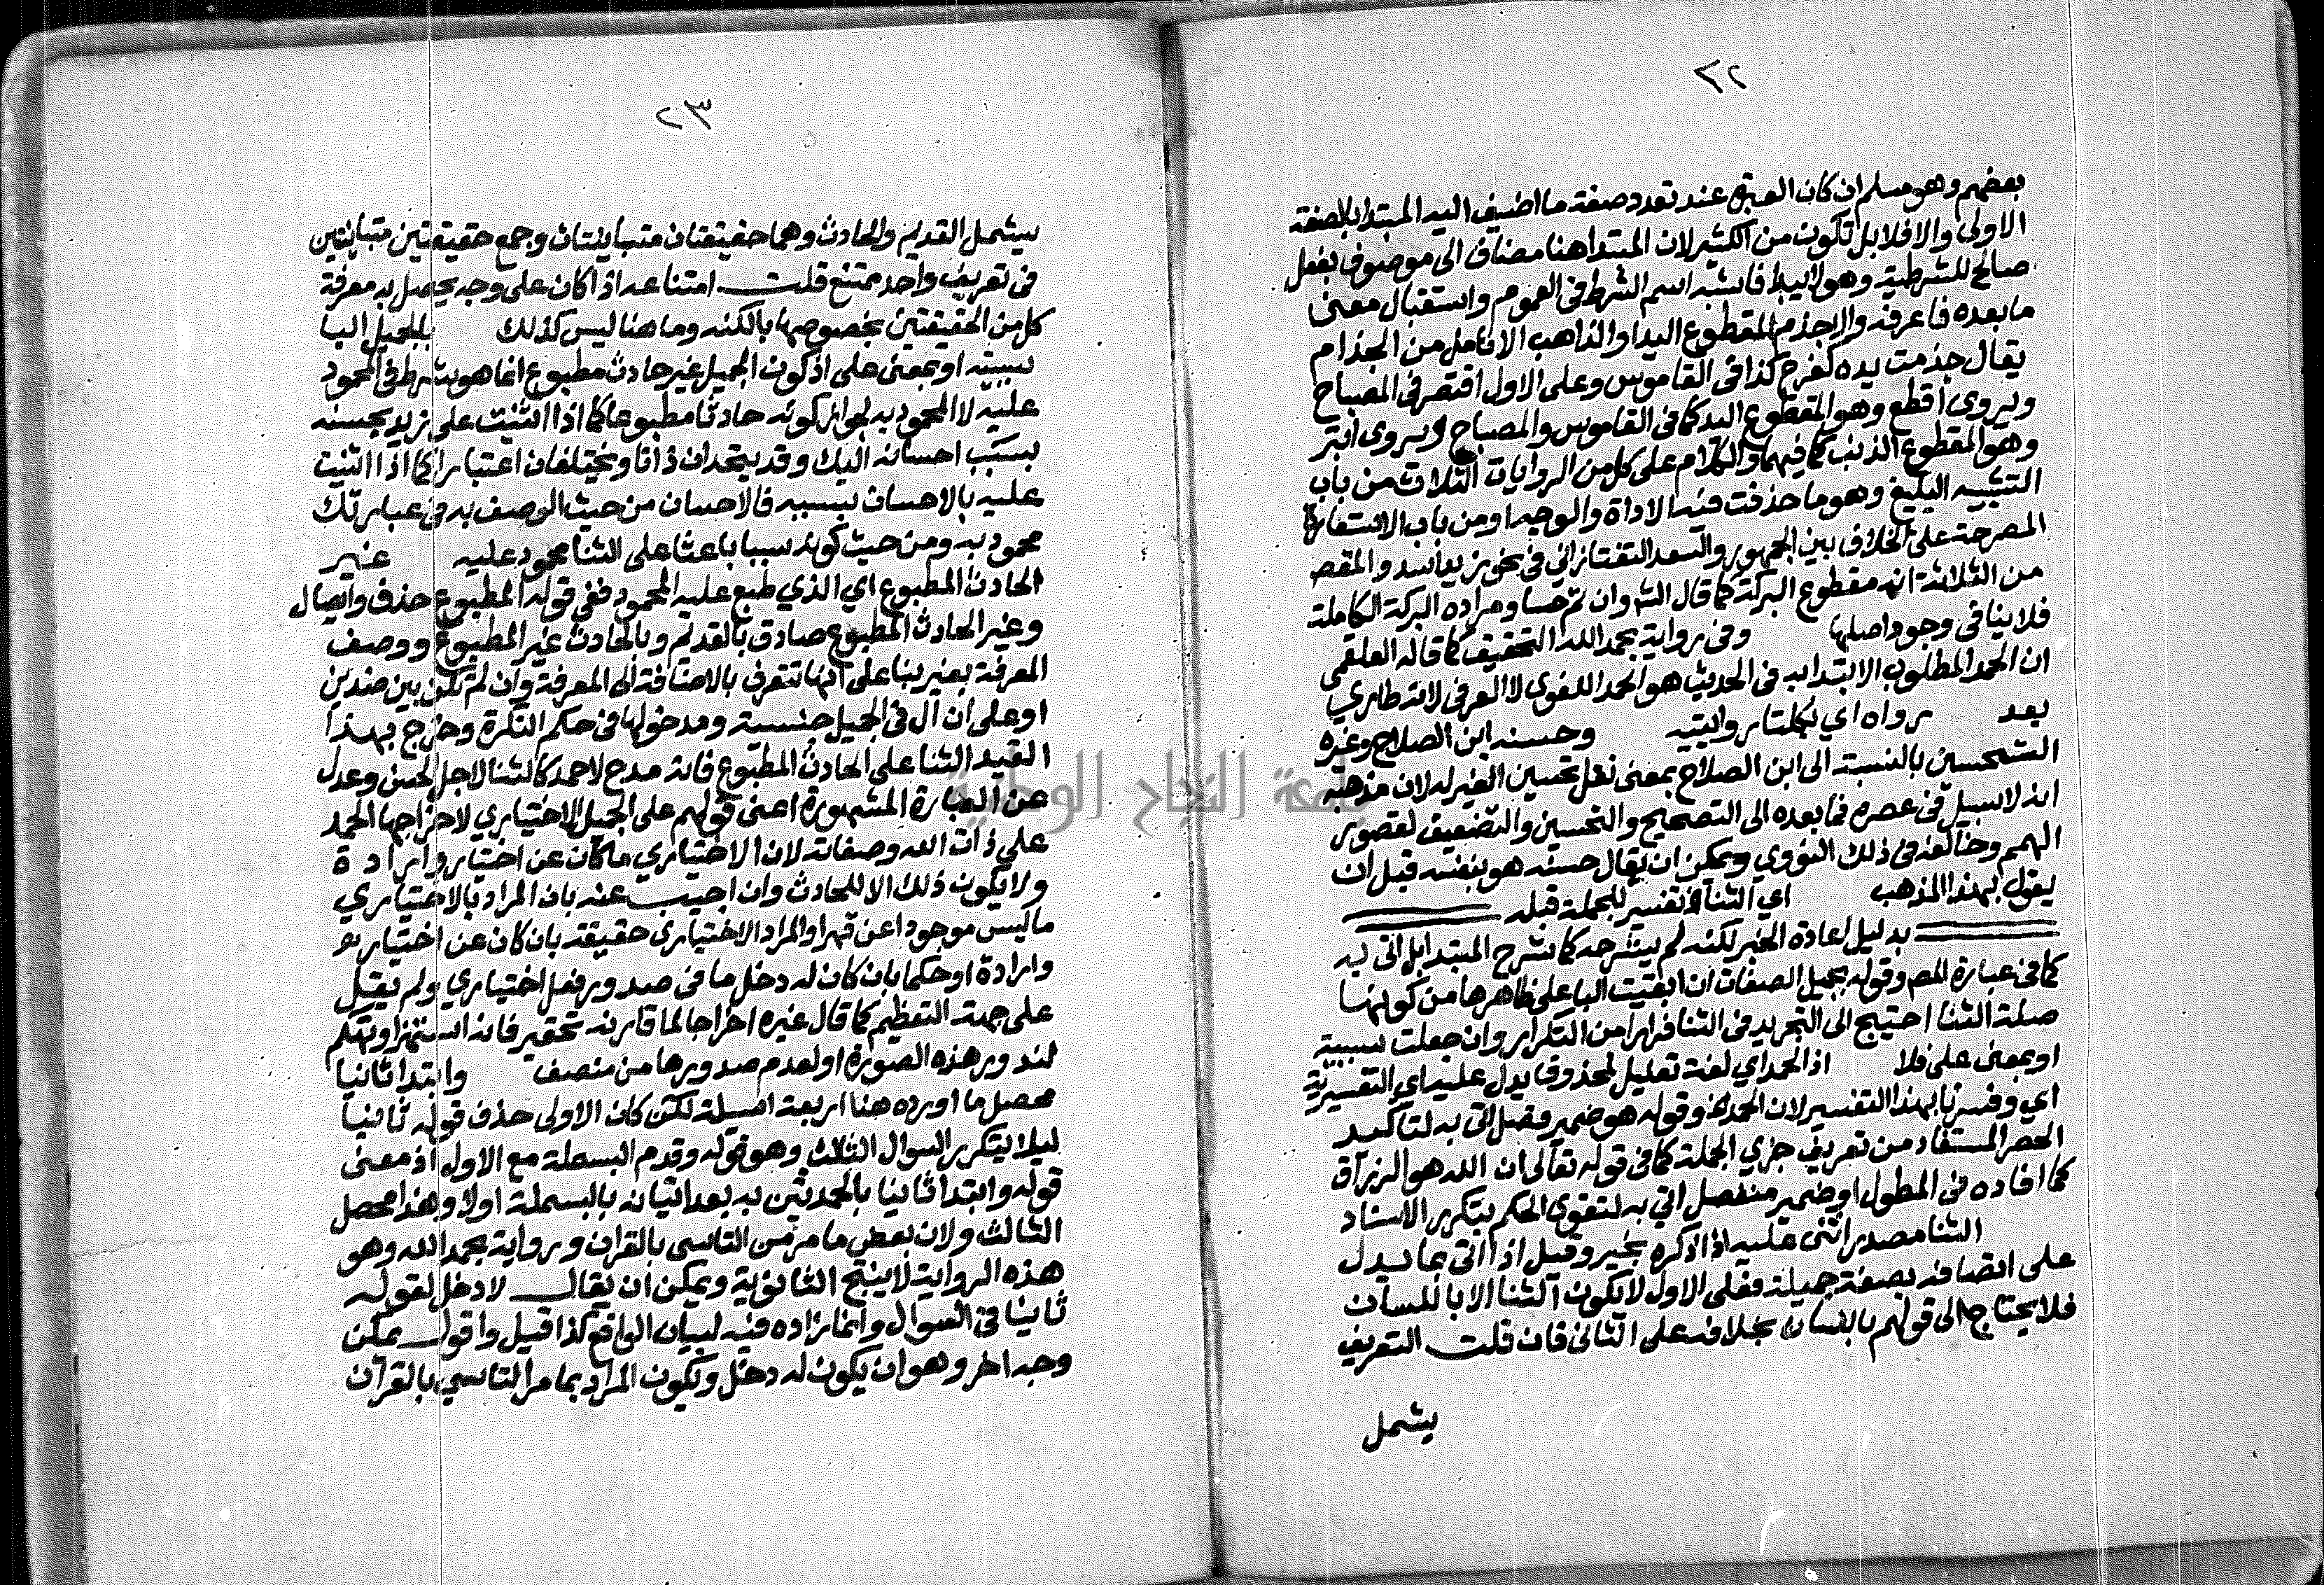 ٢٢
بعضهم وهو مسلم ان كان العبرة عند تعدد صفة ما اضيف اليه المبتدا بالصفة
الاولى والا فلا بل تكون من الكثير لان المبتدا هنا مضاف الى موصوف بفعل
صالح للشرطية وهو لايبدا فاشبه اسم الشرط في العموم واستقبال معنى
ما بعده فاعرفه والاجذم المقطوع اليد او الذاهب الانامل من الجذام
يقال جذمت يده كفرح كذا في القاموس وعلى الاول اقتصر في المصباح
ويروى اقطع وهو المقطوع اليد كما في القاموس والمصباح ويروى ابتر
وهو المقطوع الذنب كما فيهما والكلام على كل من الروايات الثلاث من باب
التشبيه البليغ وهو ما حذفت فيه الاداة والوجه او من باب الاستعارة
المصرحة على الخلاف بين الجمهور والسعد التفتازاني في نحو زيد اسد والمقصود
من الثلاثة انه مقطوع البركة كما قال الش وان تم حسا ومراده البركة الكاملة
فلا ينافي وجود اصلها وفي رواية بحمد الله التحقيق كما قاله العلقمي
ان الحمد المطلوب الابتدا به في الحديث هو الحمد اللغوي لا العرفي لانه طاري
بعد رواه اي كلتا روايتيه وحسنه ابن الصلاح وغيره
التحسين بالنسبة الى ابن الصلاح بمعنى نقل تحسين الغير له لان مذهبه
انه لا سبيل في عصره فما بعده الى التصحيح والتحسين والتضعيف لقصور
الهمم وخالفه في ذلك النووي ويمكن ان يقال حسنه هو بنفسه قبل ان
يقول بهذا المذهب اي الثنا تفسير للجملة قبله
بدليل اعادة الخبر لكنه لم يشرحه كما شرح المبتدا بل اتى به
كما في عبارة المص وقوله بجميل الصفات ان ابقيت البا على ظاهرها من كونها
صلة الثنا احتيج الى التجريد في الثنا فرارا من التكرار وان جعلت سببية
او بمعنى على فلا اذ الحمد اي لغة تعليل لمحذوف يدل عليه اي التفسيرية
اي وفسرنا بهذا التفسير لان الحمد الخ وقوله هو ضمير فصل اتى به لتاكيد
الحصر المستفاد من تعريف جزي الجملة كما في قوله تعالى ان الله هو الرزاق
كما افاده في المطول او ضمير منفصل اتي به لتقوي الحكم بتكرر الاسناد
الثنا مصدر اثنى عليه اذا ذكره بخير وقيل اذا اتى بما يدل
على اتصافه بصفة جميلة فعلى الاول لا يكون الثنا الا باللسان
فلا يحتاج الى قولهم باللسان بخلافه على الثاني فان قلت التعريف
يشمل
٢٣
يشمل القديم والحادث وهما حقيقتان متباينتان وجمع حقيقتين متباينتين
في تعريف واحد ممتنع قلت امتناعه اذا كان على وجه يحصل به معرفة
كل من الحقيقتين بخصوصها بالكنه وما هنا ليس كذلك بالجميل البا
سببية او بمعنى على اذ كون الجميل غير حادث مطبوع انما هو شرط في المحمود
عليه لا المحمود به لجواز كونه حادثا مطبوعا كما اذا اثنيت على زيد بحسنه
بسبب احسانه اليك وقد يتحدان ذاتا ويختلفان اعتبارا كما اذا اثنيت
عليه بالاحسان بسببه فالاحسان من حيث الوصف به في عبارتك
محمود به ومن حيث كونه سببا باعثا على الثنا محمود عليه غير
الحادث المطبوع اي الذي طبع عليه المحمود ففي قوله المطبوع حذف وايصال
وغير الحادث المطبوع صادق بالقديم وبالحادث غير المطبوع ووصف
المعرفة بغير بنا على انها تتعرف بالاضافة الى المعرفة وان لم تكن بين ضدين
او على ان ال في الجميل جنسية ومدخولها في حكم النكرة وخرج بهذا
القيد الثنا على الحادث المطبوع فانه مدح لا حمد كالثنا لاجل الحسن وعدل
عن العبارة المشهورة اعني قولهم على الجميل الاختياري لاخراجها الحمد
على ذات الله وصفاته لان الاختياري ما كان عن اختيار وارادة
ولا يكون ذلك الا للحادث وان اجيب عنه بان المراد بالاختياري
ما ليس موجودا عن قهر او المراد الاختياري حقيقة بان كان عن اختياره
وارادة او حكما بان كان له دخل ما في صدور فعل اختياري ولم يقيل
على جهة التعظيم كما قال غيره اخراجا لما قارنه تحقير فانه استهزا وتهكم
لندور هذه الصورة او لعدم صدورها من منصف وابتدا ثانيا
محصل ما اورده هنا اربعة اسيلة لكن كان الاولى حذف قوله ثانيا
ليلا يتكرر السوال الثالث وهو قوله وقدم البسملة مع الاول اذ معنى
قوله وابتدا ثانيا بالحمد اتيه به بعد اتيانه بالبسملة اولا وهذا محصل
الثالث ولان بعض ما مر من التاسي بالقران ورواية بحمد الله وهو
هذه الرواية لا ينتج الثانوية ويمكن ان يقال لا دخل لقوله
ثانيا في السوال وانما زاده فيه لبيان الواقع كذا قيل واقول يمكن
وجه اخر وهو ان يكون له دخل ويكون المراد بما مر التاسي بالقران
جامعة النجاح الوطنية